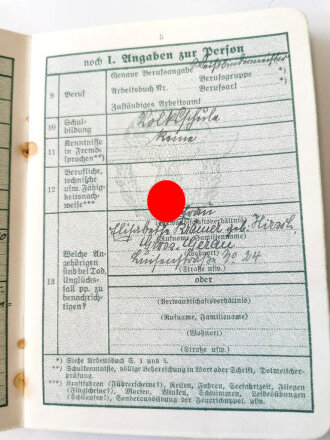 5
noch I. Angaben zur Person
9 Beruf
Genaue Berufsangabe Weißbindermeister *)
Berufsgruppe *)
Arbeitsbuch Nr. Berufsart
Zuständiges Arbeitsamt
10 Schulbildung
Volksschule
11 Kenntnisse in Fremdsprachen**)
Keine
12 Berufliche, technische usw. Fähigkeitsnachweise***)
13 Welche Angehörigen sind bei Tod, Unglücksfall pp. zu benachrichtigen?
Frau
(Verwandtschaftsverhältnis)
Elisabethe Krämer geb. Hirsch,
(Rufname, Familienname)
Gross-Gerau
(Wohnort)
Luisenstraße No 24
(Straße usw.)
oder
(Verwandtschaftsverhältnis)
(Rufname, Familienname)
(Wohnort)
(Straße usw.)
*) Siehe Arbeitsbuch S. 1 und 5.
**) Schulkenntnisse, völlige Beherrschung in Wort oder Schrift, Dolmetscherprüfung.
***) Kraftfahren (Führerscheine?), Reiten, Fahren, Seefahrtzeit, Fliegen
(Flugscheine?), Morsen, Winken, Schwimmen, Leibesübungen
(Skilaufen), Sonderausbildung der Feuerschutzpol. usw.